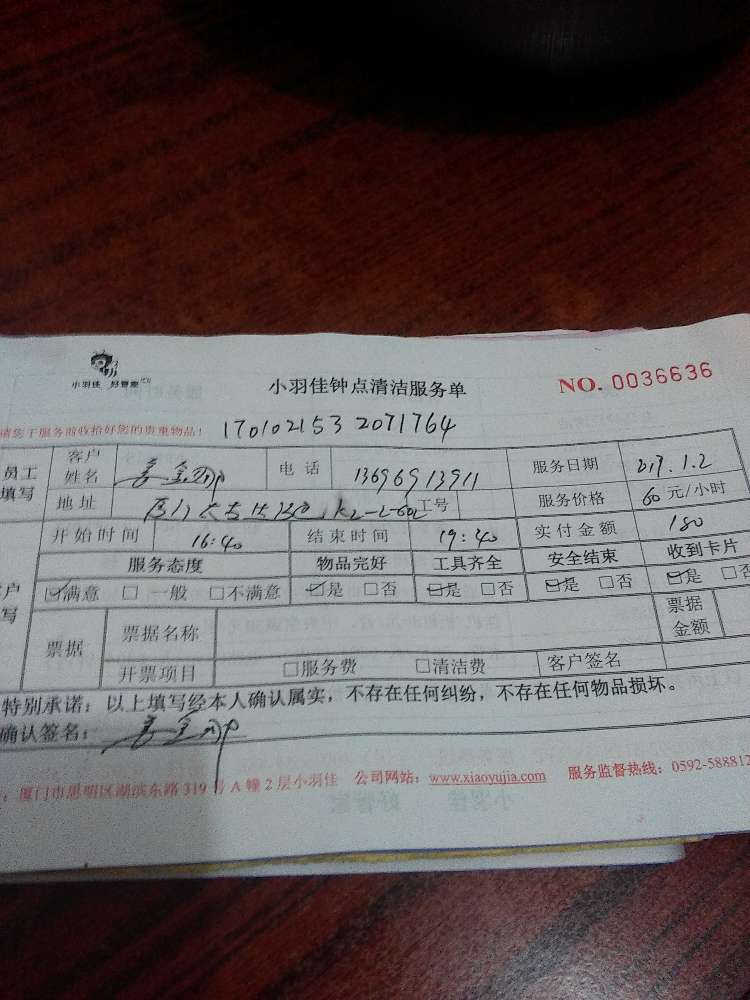 小羽佳 好管家
小羽佳钟点清洁服务单
NO. 0036636
请您于服务前收拾好您的贵重物品！
170102153 2071764
员工填写
客户姓名
电话 13696913911
服务日期 2017.1.2
地址
工号
服务价格 60 元/小时
开始时间 16:40
结束时间 19:40
实付金额 180
服务态度 物品完好 工具齐全 安全结束 收到卡片
☑满意 □一般 □不满意 ☑是 □否 ☑是 □否 ☑是 □否 ☑是 □否
票据 票据名称 票据金额
开票项目 □服务费 □清洁费 客户签名
特别承诺：以上填写经本人确认属实，不存在任何纠纷，不存在任何物品损坏。
确认签名：
：厦门市思明区湖滨东路 319 号 A 幢 2 层小羽佳 公司网站：www.xiaoyujia.com 服务监督热线：0592-588812